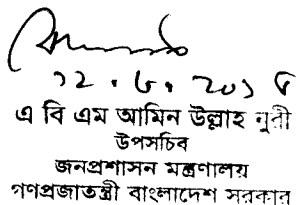 এ বি এম আমিন উল্লাহ নুরী
উপসচিব
জনপ্রশাসন মন্ত্রণালয়
গণপ্রজাতন্ত্রী বাংলাদেশ সরকার